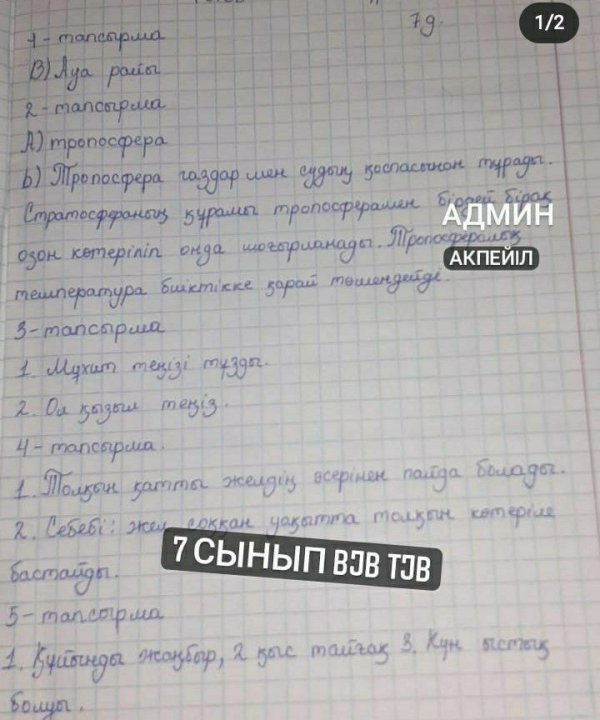 7д.
1/2
1 - тапсырма
В) Ауа райы
2 - тапсырма
А) тропосфера
б) Тропосфера газдар мен судың қоспасынан тұрады.
Стратосфераның құрамы тропосферамен бірдей бірақ
АДМИН
озон көтеріліп онда шоғырланады. Тропосфералық
АКПЕЙІЛ
температура биіктікке қарай төмендейді.
3 - тапсырма
1. Мұхит теңізі тұзды.
2. Ол қызыл теңіз.
4 - тапсырма.
1. Толқын қатты желдің әсерінен пайда болады.
2. Себебі: жел соққан уақытта толқын көтеріле
7 СЫНЫП BJB TJB
бастайды.
5 - тапсырма
1. Құйынды жаңбыр, 2 қыс тайғақ 3. Күн ыстық
болуы.